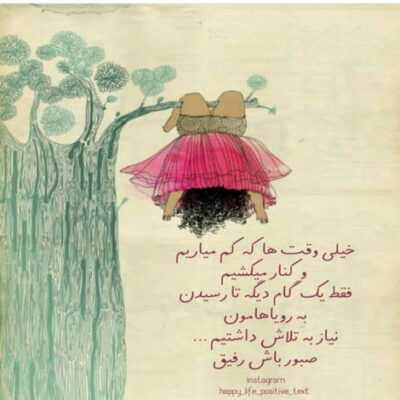 خیلی وقت ها که کم میاریم
و کنار میکشیم
فقط یک گام دیگه تا رسیدن
به رویاهامون
نیاز به تلاش داشتیم ...
صبور باش رفیق
instagram
happy_life_positive_text